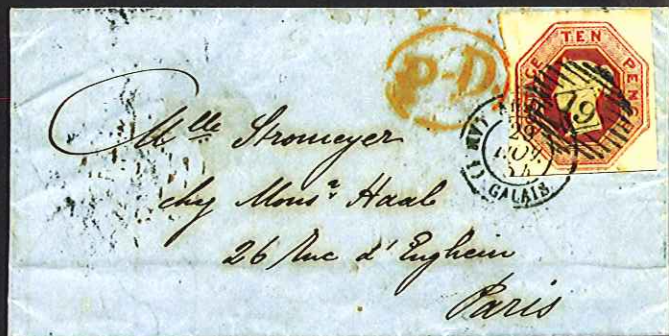 P-D
TEN PENCE
19
29
NOV.
54
CALAIS
Mlle Stromeyer
chez Monsr Haal
26 Rue d'Enghein
Paris